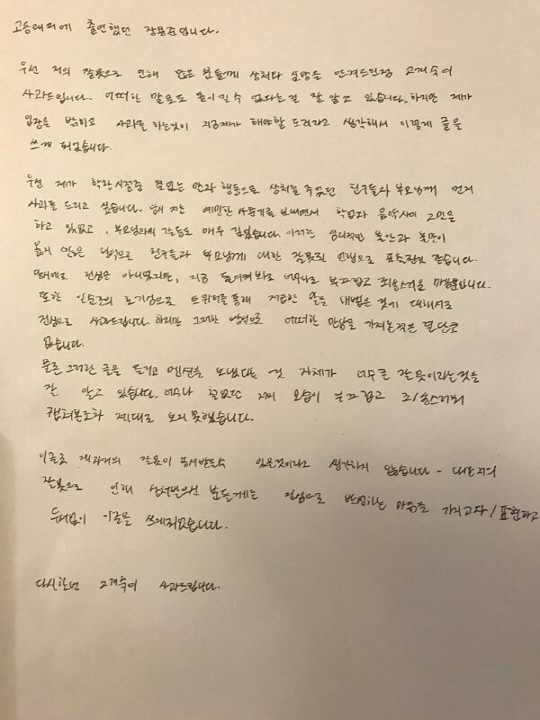 고등래퍼에 출연했던 장용준입니다.
우선 저의 잘못으로 인해 많은 분들께 상처와 실망을 안겨드린점 고개숙여
사과드립니다. 어떠한 말로도 돌이킬 수 없다는걸 잘 알고 있습니다. 하지만 제가
입장을 밝히고 사과를 하는것이 지금제가 해야할 도리라고 생각해서 이렇게 글을
쓰게 되었습니다.
우선 제가 학창시절중 철없는 말과 행동으로 상처를 주었던 친구들과 부모님께 먼저
사과를 드리고 싶습니다. 당시 저는 예민한 사춘기를 보내면서 학업과 음악사이 고민을
하고 있었고, 부모님과의 갈등도 매우 깊었습니다. 이러한 심리적인 불안과 불만이
옳지 않은 방식으로 친구들과 부모님께 대한 잘못된 언행으로 표출된것 같습니다.
때때로 진심은 아니었지만, 지금 돌이켜봐도 너무나도 부끄럽고 죄송스러울 따름입니다.
또한 일순간의 호기심으로 트위터를 통해 저급한 말을 내뱉은 것에 대해서도
진심으로 사과드립니다. 하지만 그러한 방식으로 어떠한 만남을 가져본적은 결단코
없습니다.
물론 그러한 글을 올리고 멘션을 보냈다는 것 자체가 너무 큰 잘못이라는것을
잘 알고 있습니다. 너무나 철없던 저의 모습이 부끄럽고 죄송스러워
캡쳐본조차 제대로 보지 못했습니다.
이글로 제과거의 잘못이 용서받을수 있을것이라고 생각하지 않습니다- 다만 저의
잘못으로 인해 상처받으신 분들께는 진심으로 반성하는 마음을 가지고자/표현하고
두서없이 이글을 쓰게되었습니다.
다시한번 고개숙여 사과드립니다.